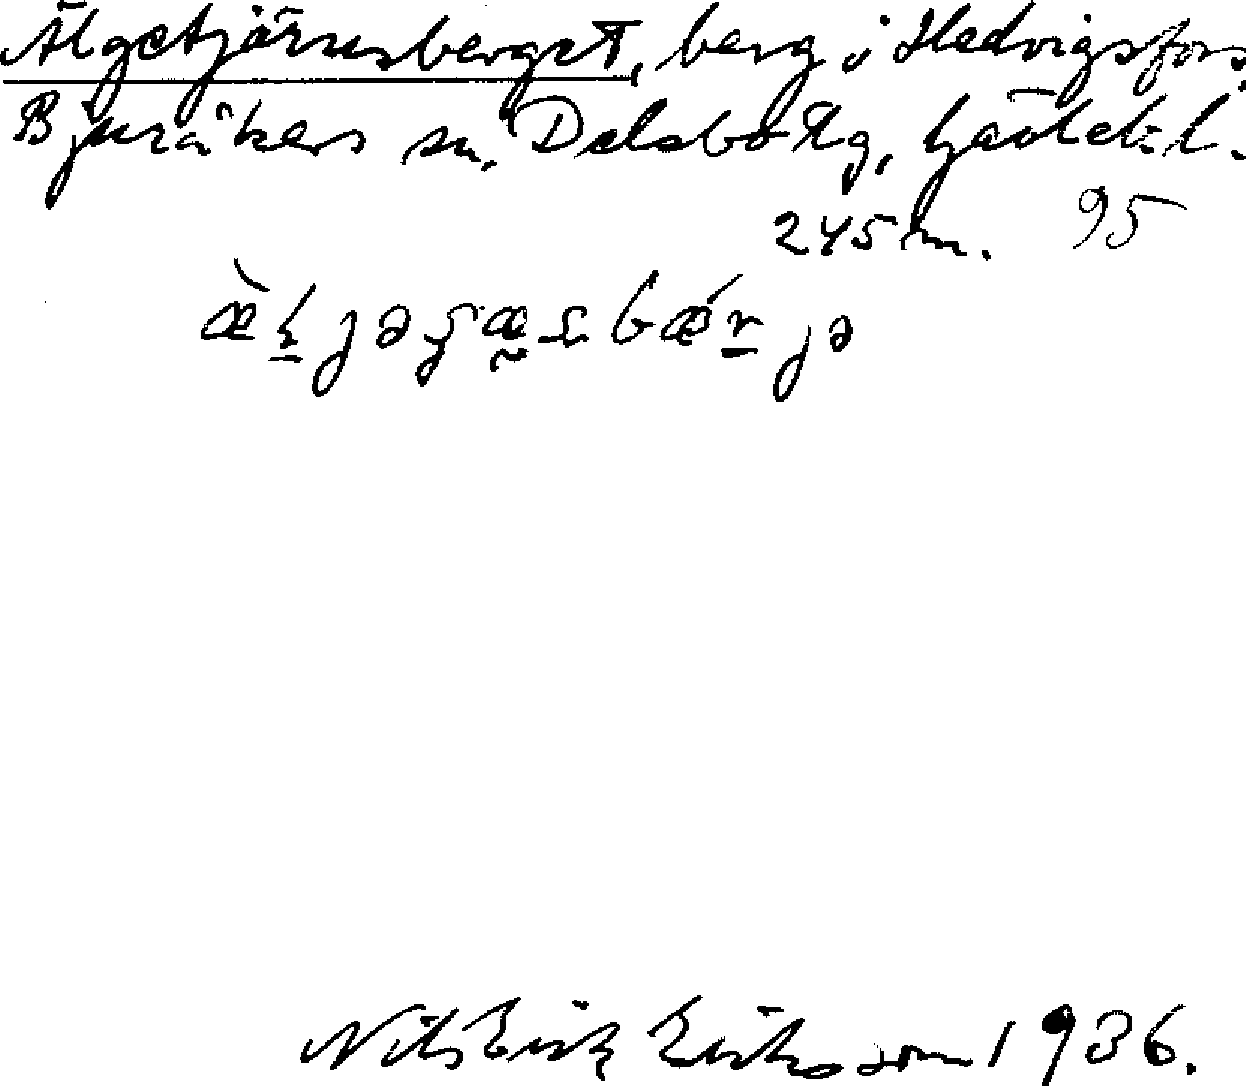 Älgetjärnsberget, berg i Hedvigsfors,
Bjuråkers sn, Delsbo tlg, Gävlebl.
245 m. 95
Nils Erik Eriksson 1936.